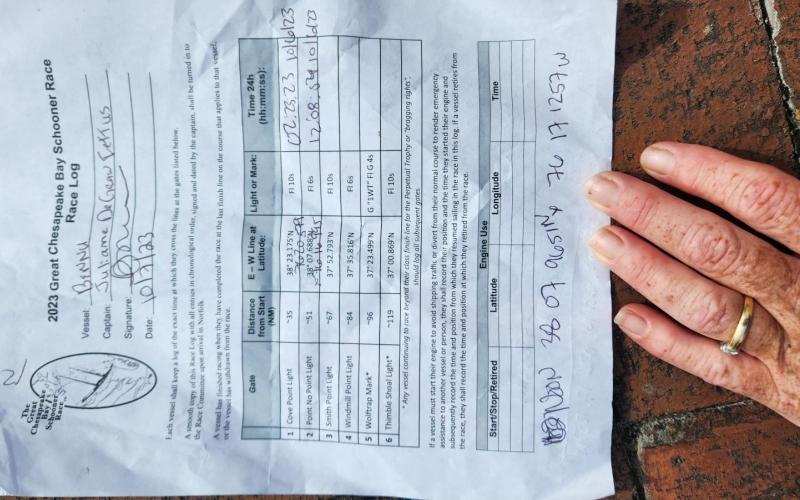 2/
The
Great
Chesapeake
Bay
Schooner
Race
2023 Great Chesapeake Bay Schooner Race
Race Log
Vessel: BIENNU
Captain: Juliane
Signature:
Date: 10/7/23
Each vessel shall keep a log of the exact time at which they cross the lines at the gates listed below.
A smooth copy of this Race Log with all entries in chronological order, signed and dated by the captain, shall be turned in to
the Race Committee upon arrival in Norfolk.
A vessel has finished racing when they have completed the race at the last finish line on the course that applies to that vessel,
or the vessel has withdrawn from the race.
Gate Distance from Start (NM) E – W Line at Latitude: Light or Mark: Time 24h (hh:mm:ss):
1 Cove Point Light ~35 38° 23.175'N Fl 10s 02:25:23 10/6/23
2 Point No Point Light ~51 Fl 6s 12:08:54 10/6/23
3 Smith Point Light ~67 37° 52.793'N Fl 10s
4 Windmill Point Light ~84 37° 35.816'N Fl 6s
5 Wolftrap Mark* ~96 37° 23.499'N G "1WT" Fl G 4s
6 Thimble Shoal Light* ~119 37° 00.869'N Fl 10s
* Any vessel continuing to race beyond their class finish line for the Perpetual Trophy or "bragging rights",
should log all subsequent gates.
If a vessel must start their engine to avoid shipping traffic, or divert from their normal course to render emergency
assistance to another vessel or person, they shall record their position and the time they started their engine and
subsequently record the time and position from which they resumed sailing in the race in this log. If a vessel retires from
the race, they shall record the time and position at which they retired from the race.
Engine Use
Start/Stop/Retired Latitude Longitude Time
38 07 9651N 76 17 1257W